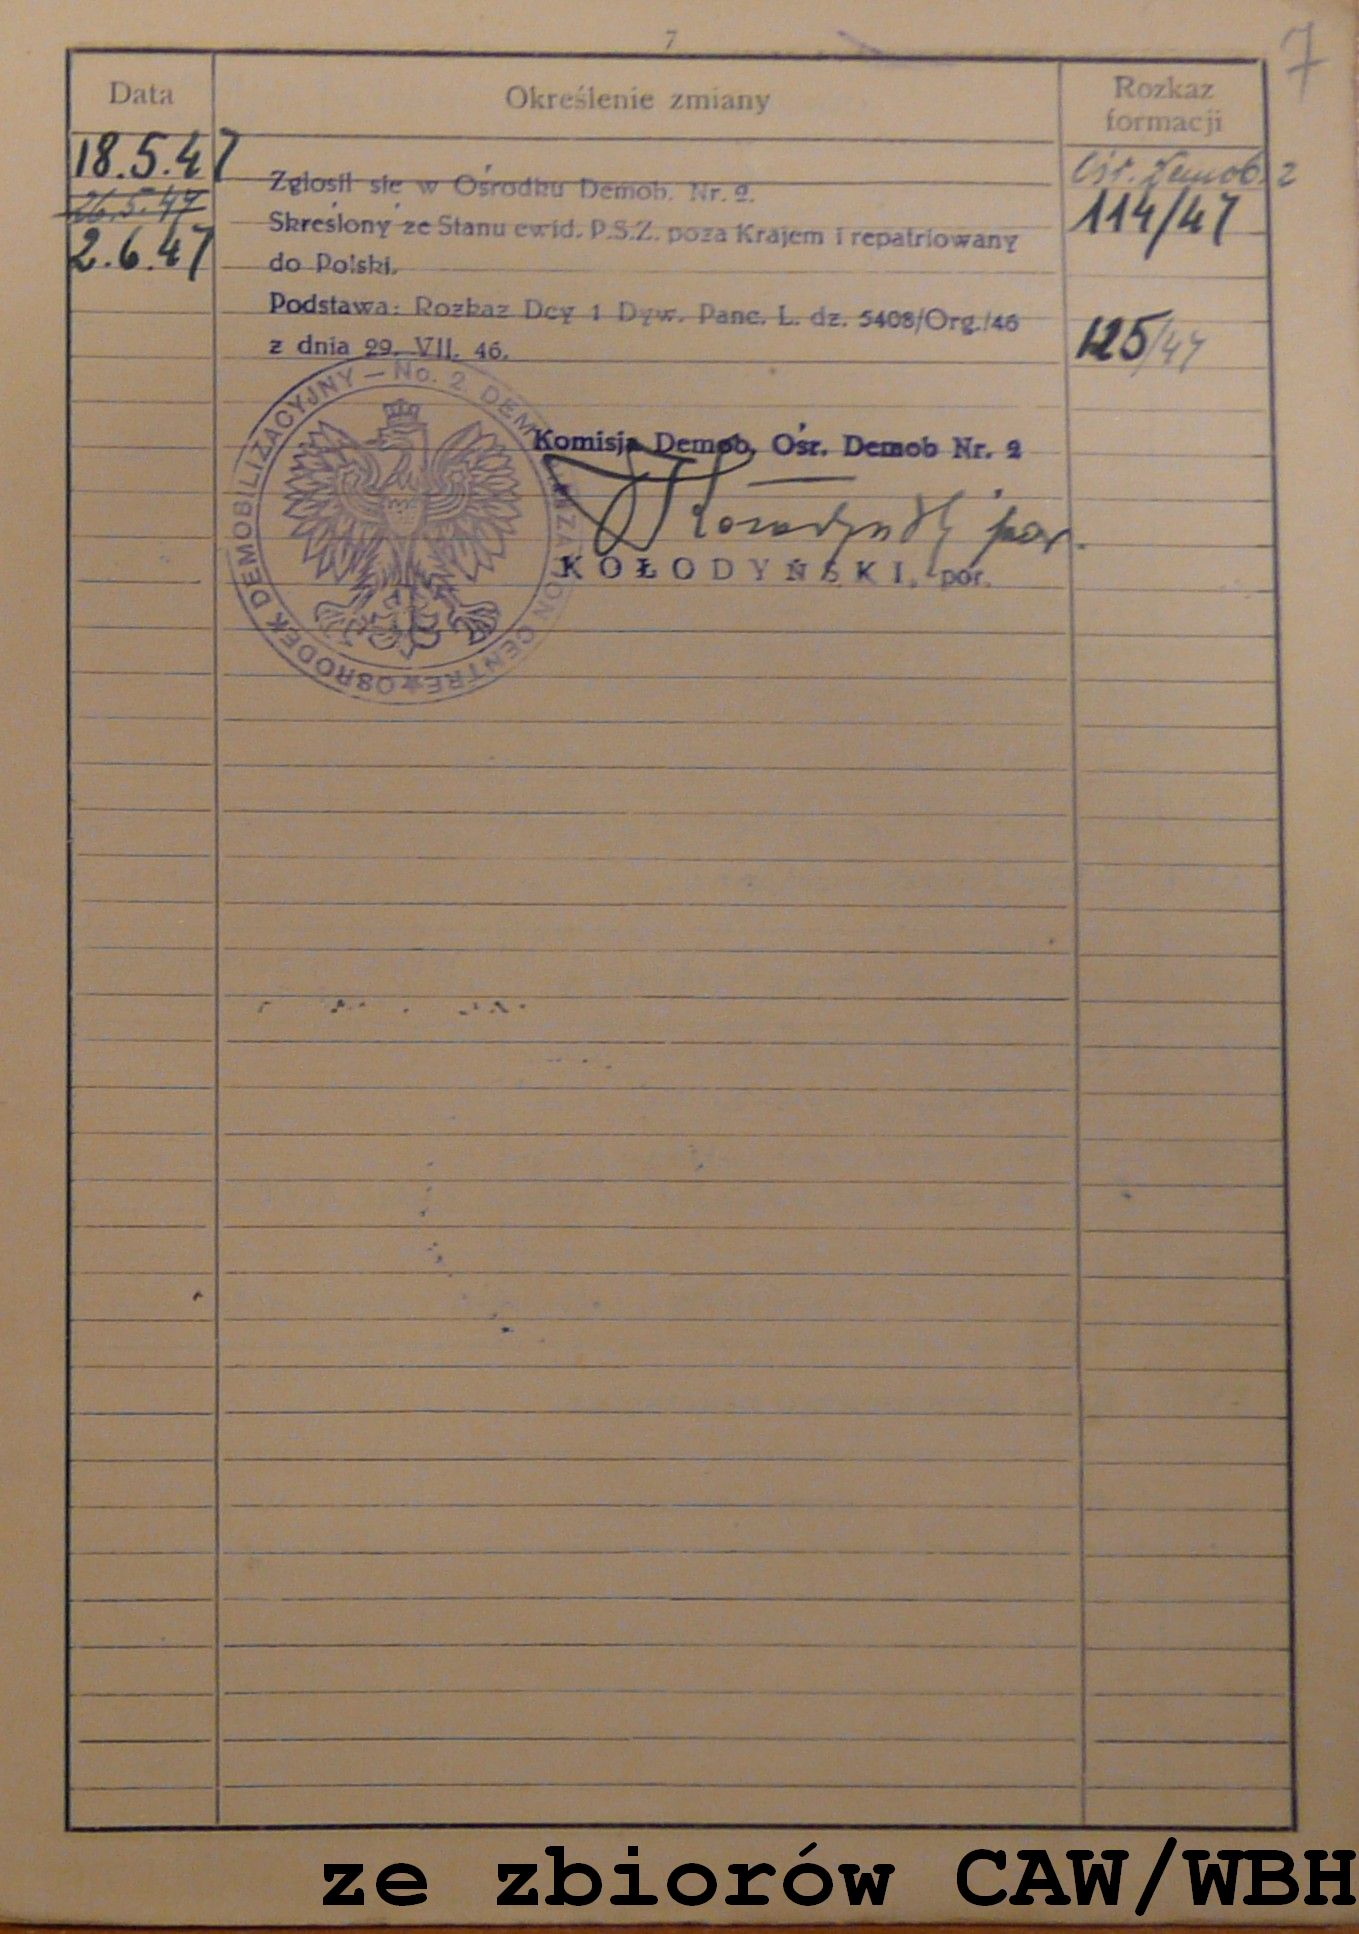 7
7
Data
Określenie zmiany
Rozkaz
formacji
18.5.47
Ośr. Demob. 2
Zgłosił się w Ośrodku Demob. Nr. 2.
26.5.47
114/47
Skreślony ze Stanu ewid. P.S.Z. poza Krajem i repatriowany
2.6.47
do Polski.
Podstawa: Rozkaz Dcy 1 Dyw. Panc. L. dz. 5408/Org./46
125/47
z dnia 29. VII. 46.
OŚRODEK DEMOBILIZACYJNY — No. 2. DEMOBILIZATION CENTRE
Komisja Demob. Ośr. Demob Nr. 2
Kołodyński por.
KOŁODYŃSKI, por.
ze zbiorów CAW/WBH